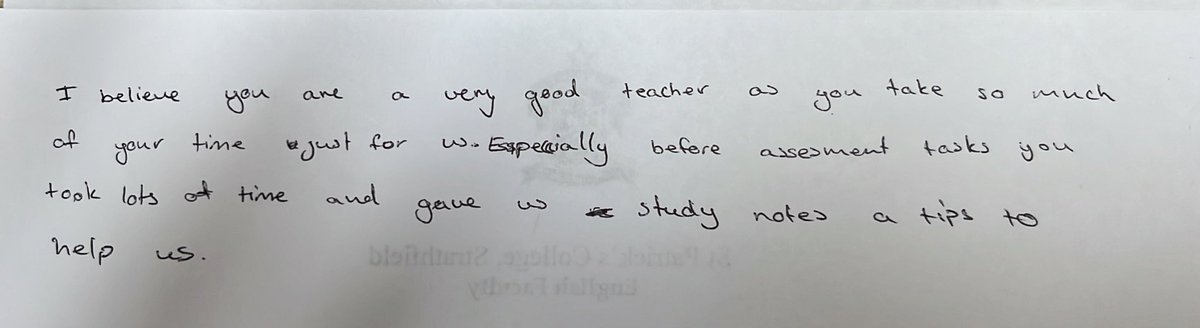 I believe you are a very good teacher as you take so much
of your time just for us. Especially before assesment tasks you
took lots of time and gave us study notes a tips to
help us.
St Patrick's College, Strathfield
English Faculty